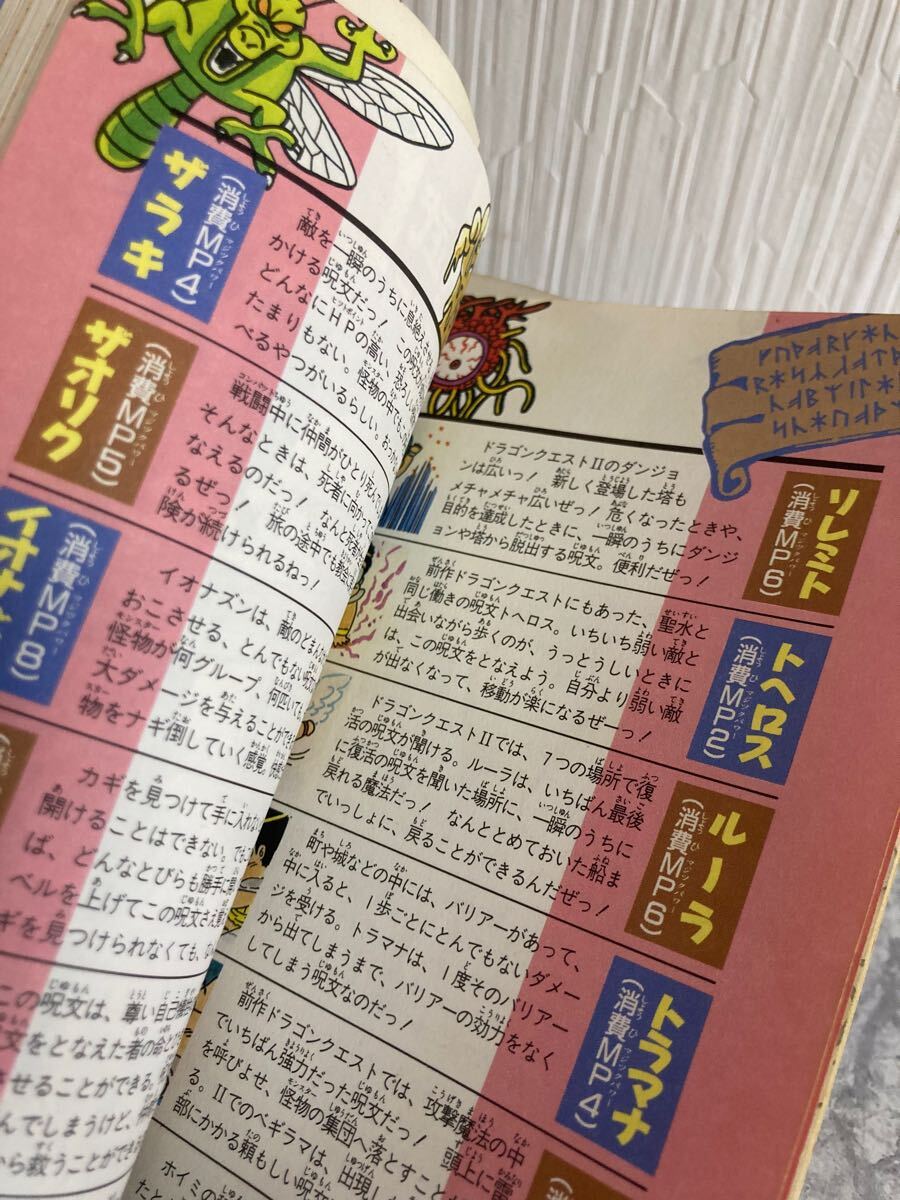 ザラキ
(消費MP4)
敵を一瞬のうちに息絶え
かける呪文だっ! この呪文
どんなにHPの高い、恐ろし
たまりもない。怪物の中でも
べるやつがいるらしい。
ザオリク
(消費MP5)
戦闘中に仲間がひとり死んで
そんなときは、死者に向かって
なえるのだっ! なんと死者が
るぜっ! 旅の途中でも教会
険が続けられるねっ!
イオナズ
(消費MP8)
イオナズンは、敵のどまん
おこさせる、とんでもない呪文
怪物が何グループ、何匹いても
大ダメージを与えることができ
物をナギ倒していく感覚
カギを見つけて手に入れない
開けることはできない。でもこ
ば、どんなとびらも勝手に開
ベルを上げてこの呪文さえ覚
ギを見つけられなくても、
この呪文は、尊い自己犠牲
文をとなえた者の命と
させることができる。
んでしまうけど、仲
から救うことができ
ドラゴンクエストIIのダンジョ
ンは広いっ! 新しく登場した塔も
メチャメチャ広いぜっ! 危くなったときや、
目的を達成したときに、一瞬のうちにダンジ
ョンや塔から脱出する呪文。便利だぜっ!
ソレミト
(消費MP6)
前作ドラゴンクエストにもあった、聖水と
同じ働きの呪文トヘロス。いちいち弱い敵と
出会いながら歩くのが、うっとうしいときに
は、この呪文をとなえよう。自分より弱い敵
が出なくなって、移動が楽になるぜーっ!
トヘロス
(消費MP2)
ドラゴンクエストIIでは、7つの場所で復
活の呪文が聞ける。ルーラは、いちばん最後
に復活の呪文を聞いた場所に、一瞬のうちに
戻れる魔法だっ! なんととめておいた船ま
でいっしょに、戻ることができるんだぜっ!
ルーラ
(消費MP6)
町や城などの中には、バリアーがあって、
中に入ると、1歩ごとにとんでもないダメー
ジを受ける。トラマナは、1度そのバリアー
から出てしまうまで、バリアーの効力をなく
してしまう呪文なのだっ!
トラマナ
(消費MP4)
前作ドラゴンクエストでは、攻撃魔法の中
でいちばん強力だった呪文だっ! 頭上に雷
を呼びよせ、怪物の集団へ落とすこと
る。IIでのベギラマは、出現し
部にかかる頼もしい呪文
ホイミの